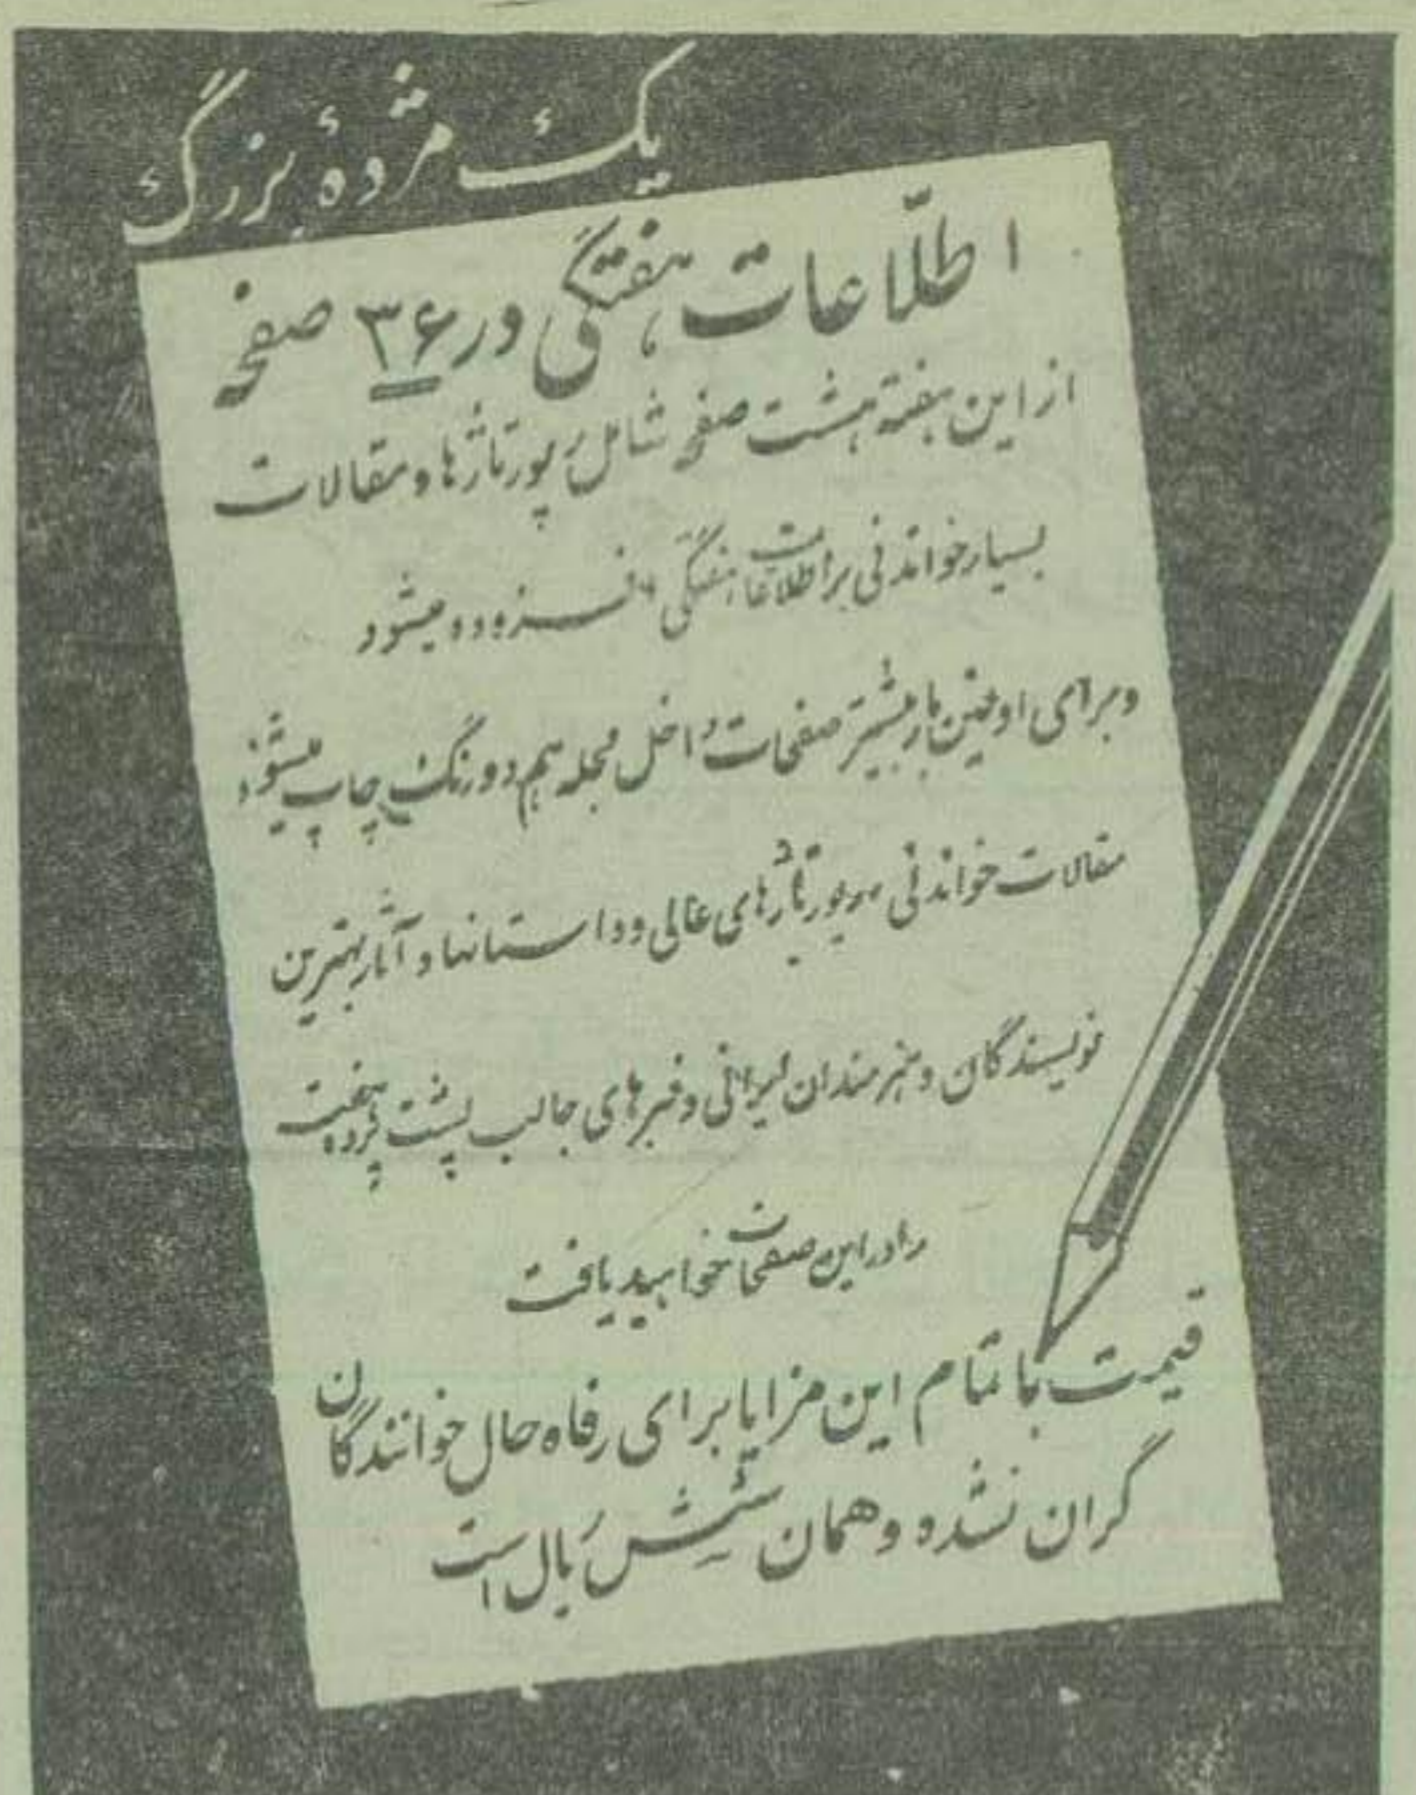 یک مژدهٔ بزرگ
اطلّاعات هفتگی در ۳۶ صفحه
از این هفته هشت صفحه شامل رپورتاژها و مقالات
بسیار خواندنی بر اطلاعات هفتگی افزوده میشود
و برای اولین بار بیشتر صفحات داخل مجله هم دو رنگ چاپ میشود
مقالات خواندنی رپورتاژهای عالی و داستانها و آثار بهترین
نویسندگان و هنرمندان ایرانی و خبرهای جالب پشت پرده هفت
را در این صفحات خواهید یافت
قیمت با تمام این مزایا برای رفاه حال خوانندگان
گران نشده و همان شش ریال است